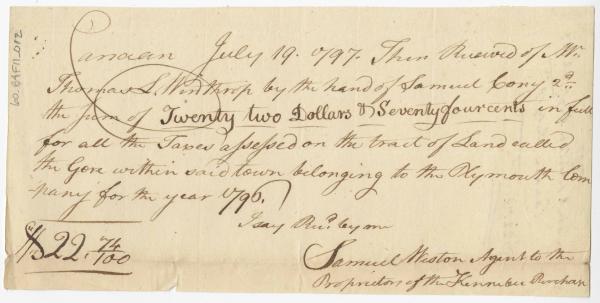 Canaan July 19. 1797. Then Received of Mr.
Thomas L. Winthrop by the hand of Samuel Cony 2d
the sum of Twenty two Dollars & Seventy four cents in full
for all the Taxes assessed on the tract of Land called
the Gore within said town belonging to the Plymouth Com
pany for the year 1796.
I say Recd. by me
$22. 74/100
Samuel Weston Agent to the
Proprietors of the Kennebec Purchas